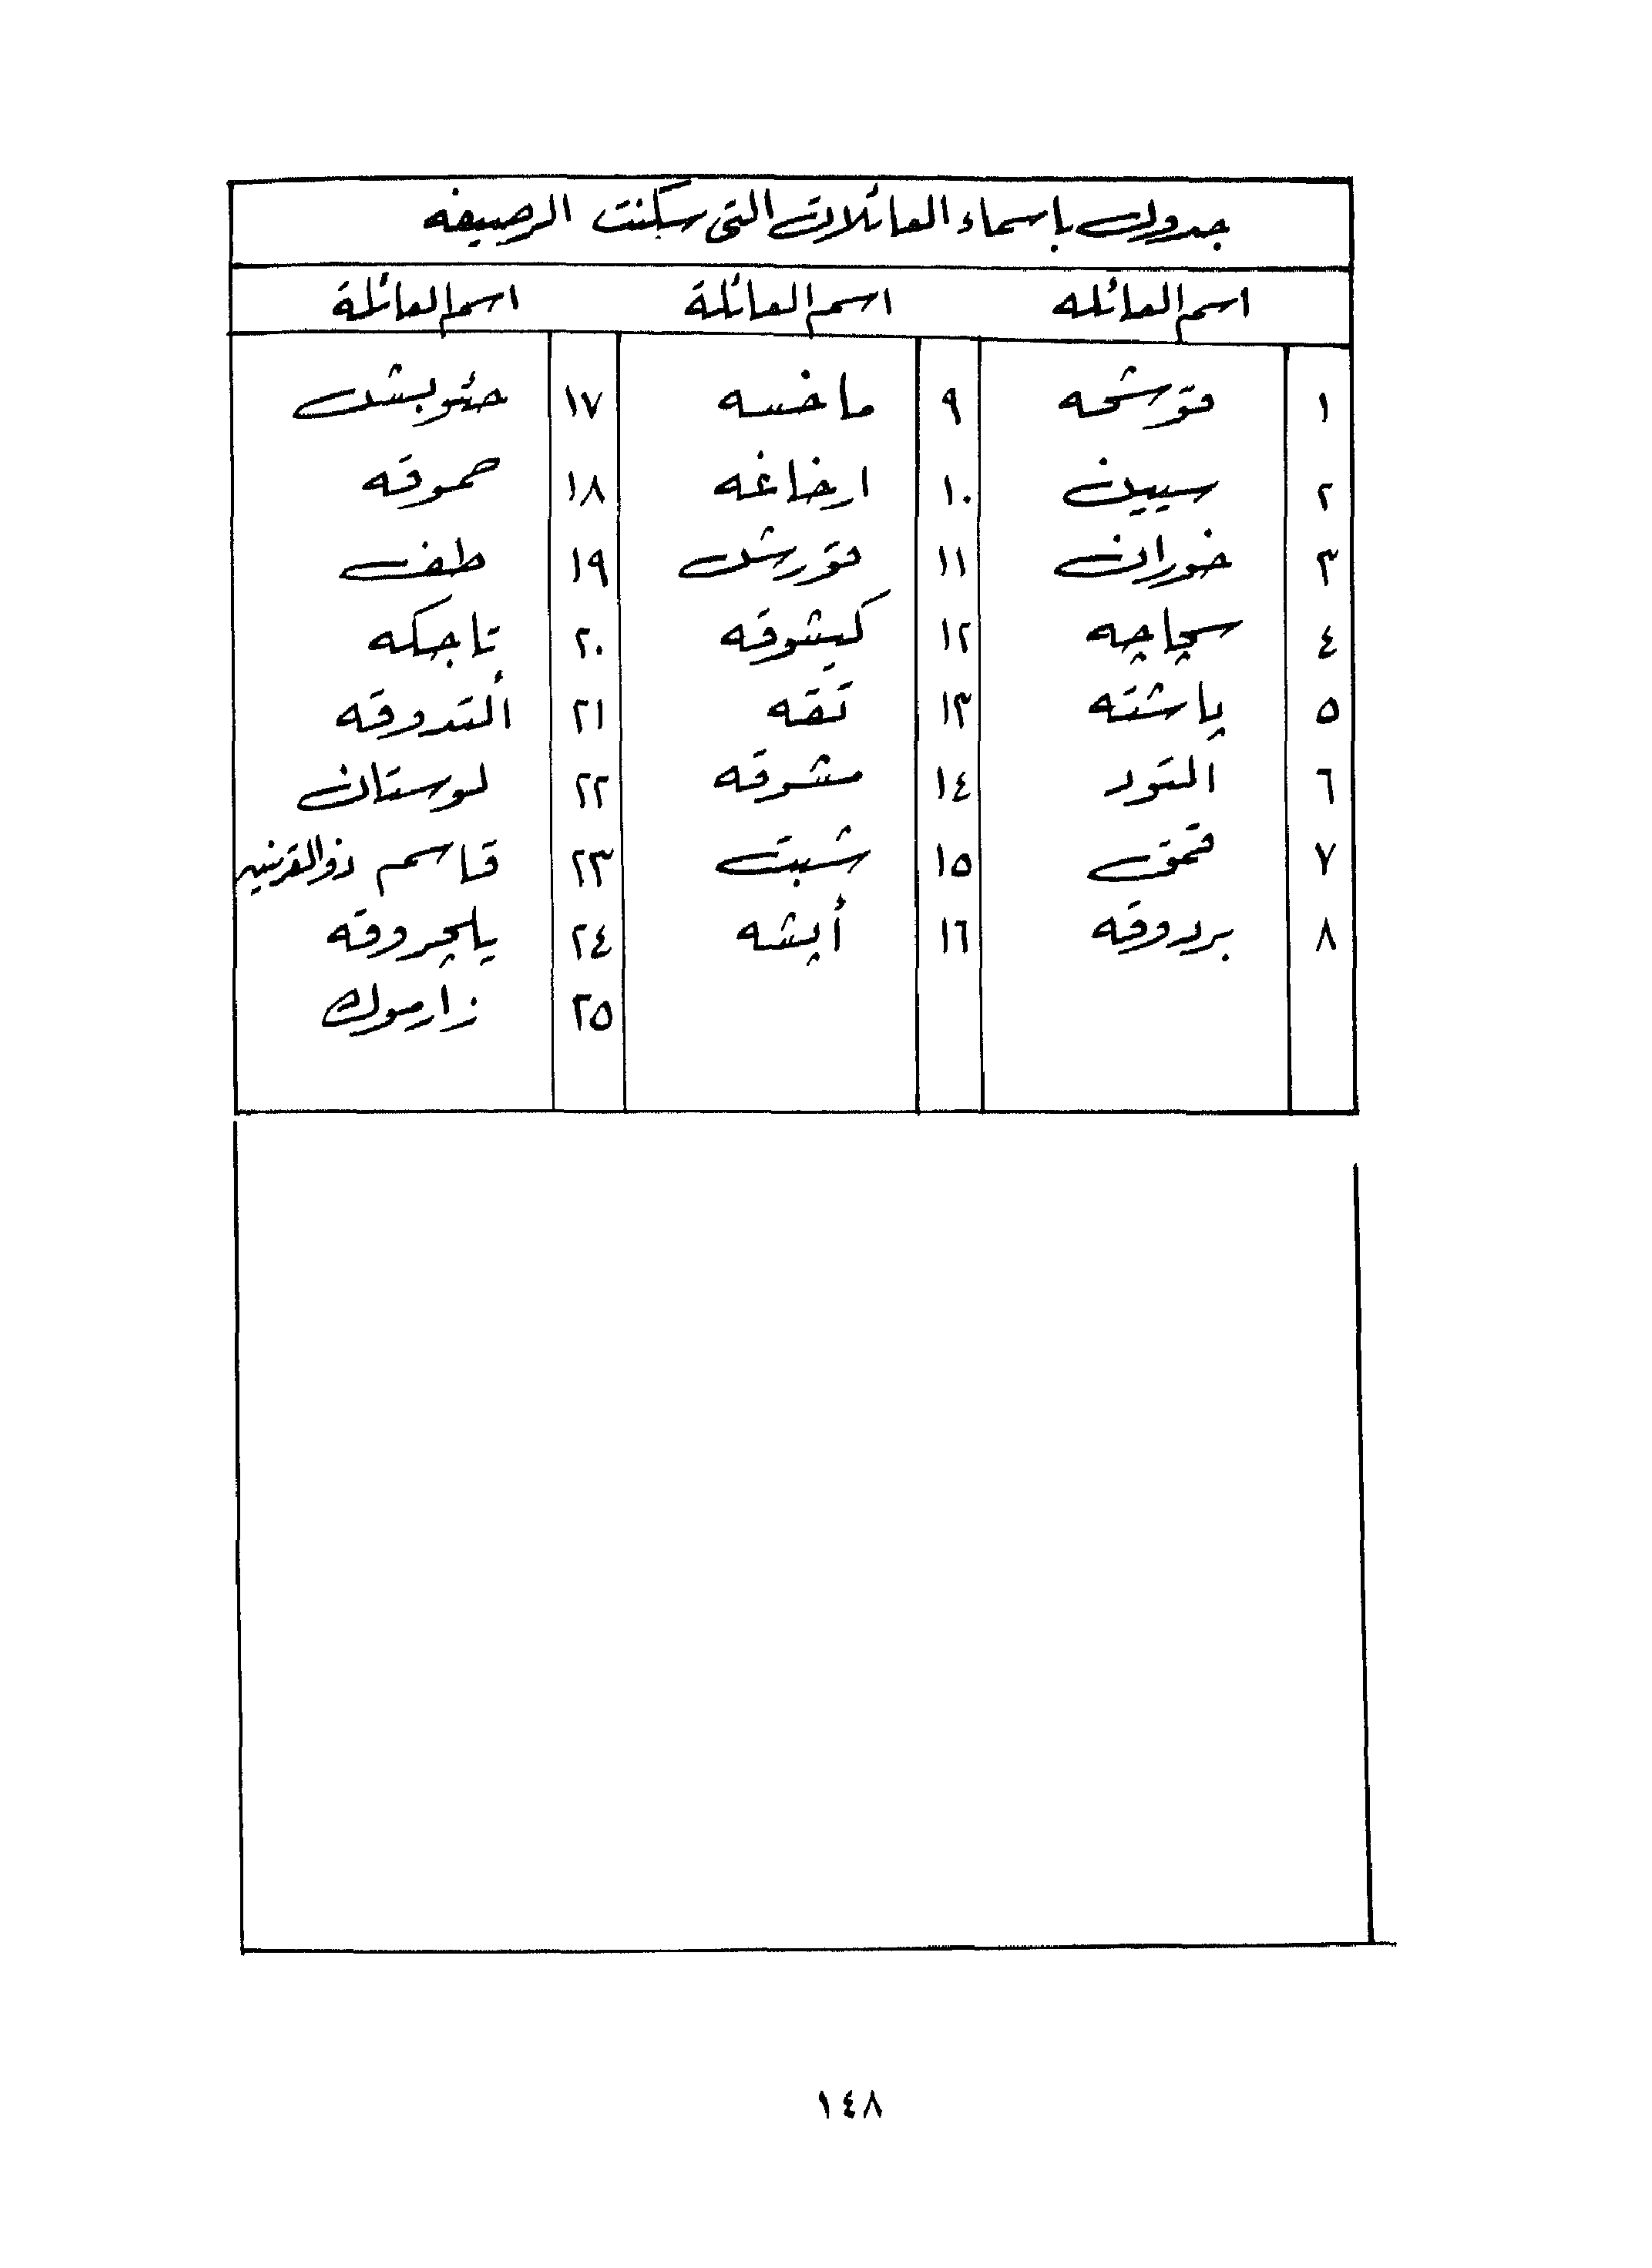 جدول باسماء العائلات التي سكنت الرصيفه
اسم العائله اسم العائلة اسم العائلة
١ قوشحه ٩ ماخسه ١٧ حئوبشك
٢ سيين ١٠ ارخاغه ١٨ حموقه
٣ خوران ١١ قورش ١٩ طف
٤ سچاچه ١٢ كيشوقه ٢٠ تاجكه
٥ پاشته ١٣ تقه ٢١ ألتدوقه
٦ التود ١٤ مشوقه ٢٢ لوستان
٧ قمق ١٥ شبت ٢٣ قاسم ذوالقرنين
٨ بردوقه ١٦ أپشه ٢٤ يلچروقه
٢٥ زارموك
١٤٨